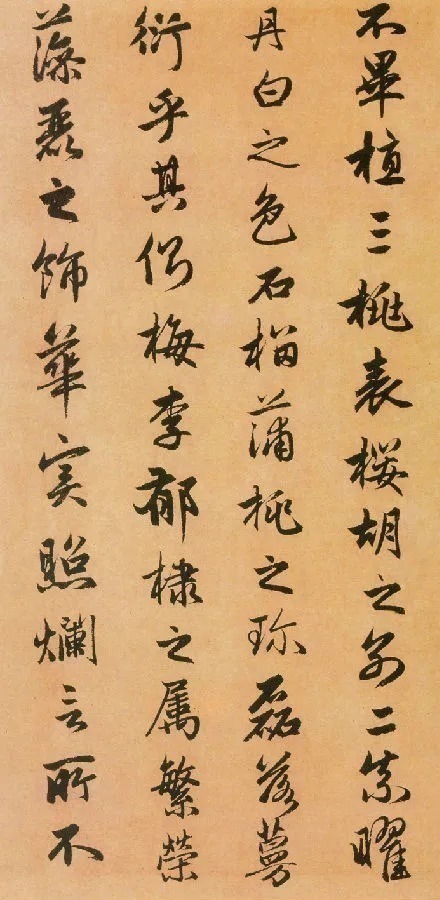 不畢植三桃表櫻胡之別二柰曜
丹白之色石榴蒲桃之珍磊落蔓
衍乎其側梅李郁棣之属繁榮
藻麗之飾華實照爛言所不